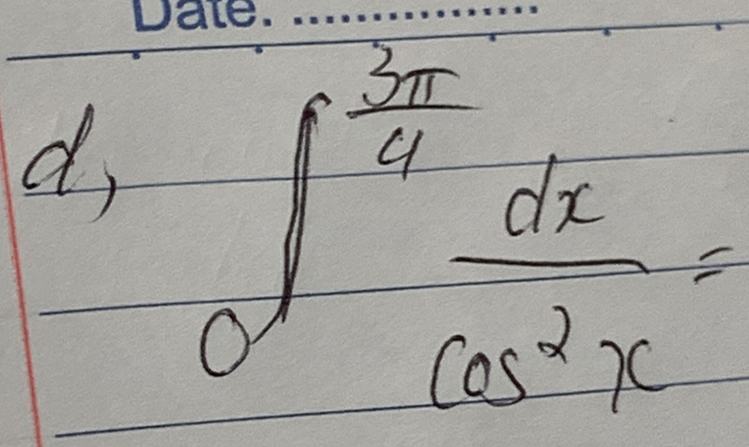 Date. ..................
d, ∫_0^{3π/4} dx/cos²x =